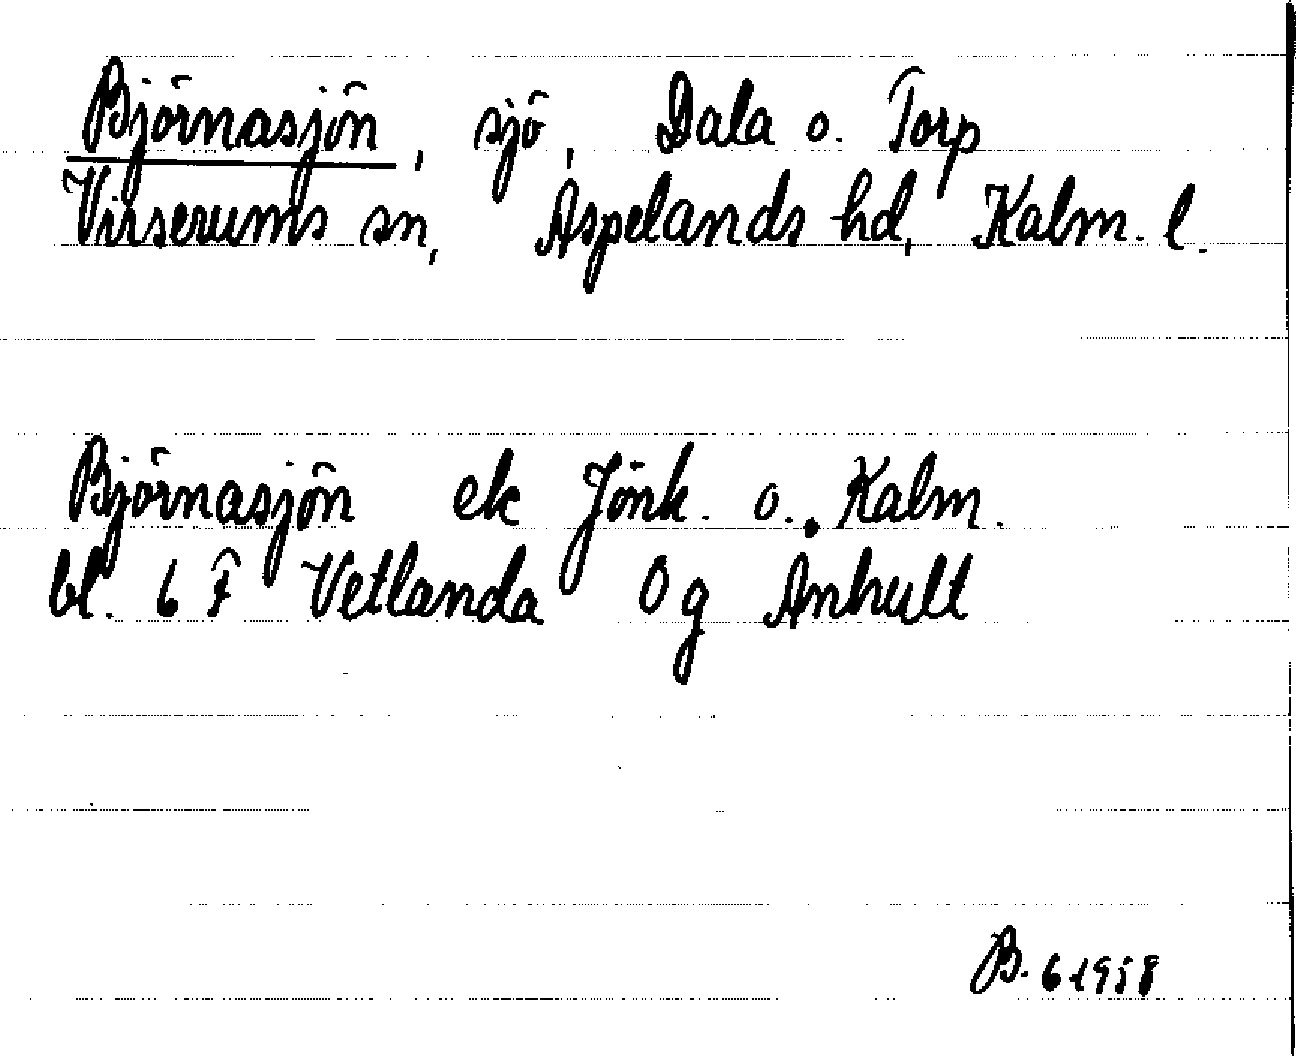 Björnasjön, sjö, Dala o. Torp
Virserums sn, Aspelands hd, Kalm. l.
Björnasjön ek Jönk. o. Kalm.
bl. 6 F Vetlanda Og Anhult
B. 6 1958